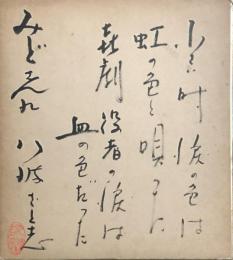 小さい時 涙の色は
虹の色と唄った
喜劇役者の涙は
血の色だった
みどりしれ 八波むと志